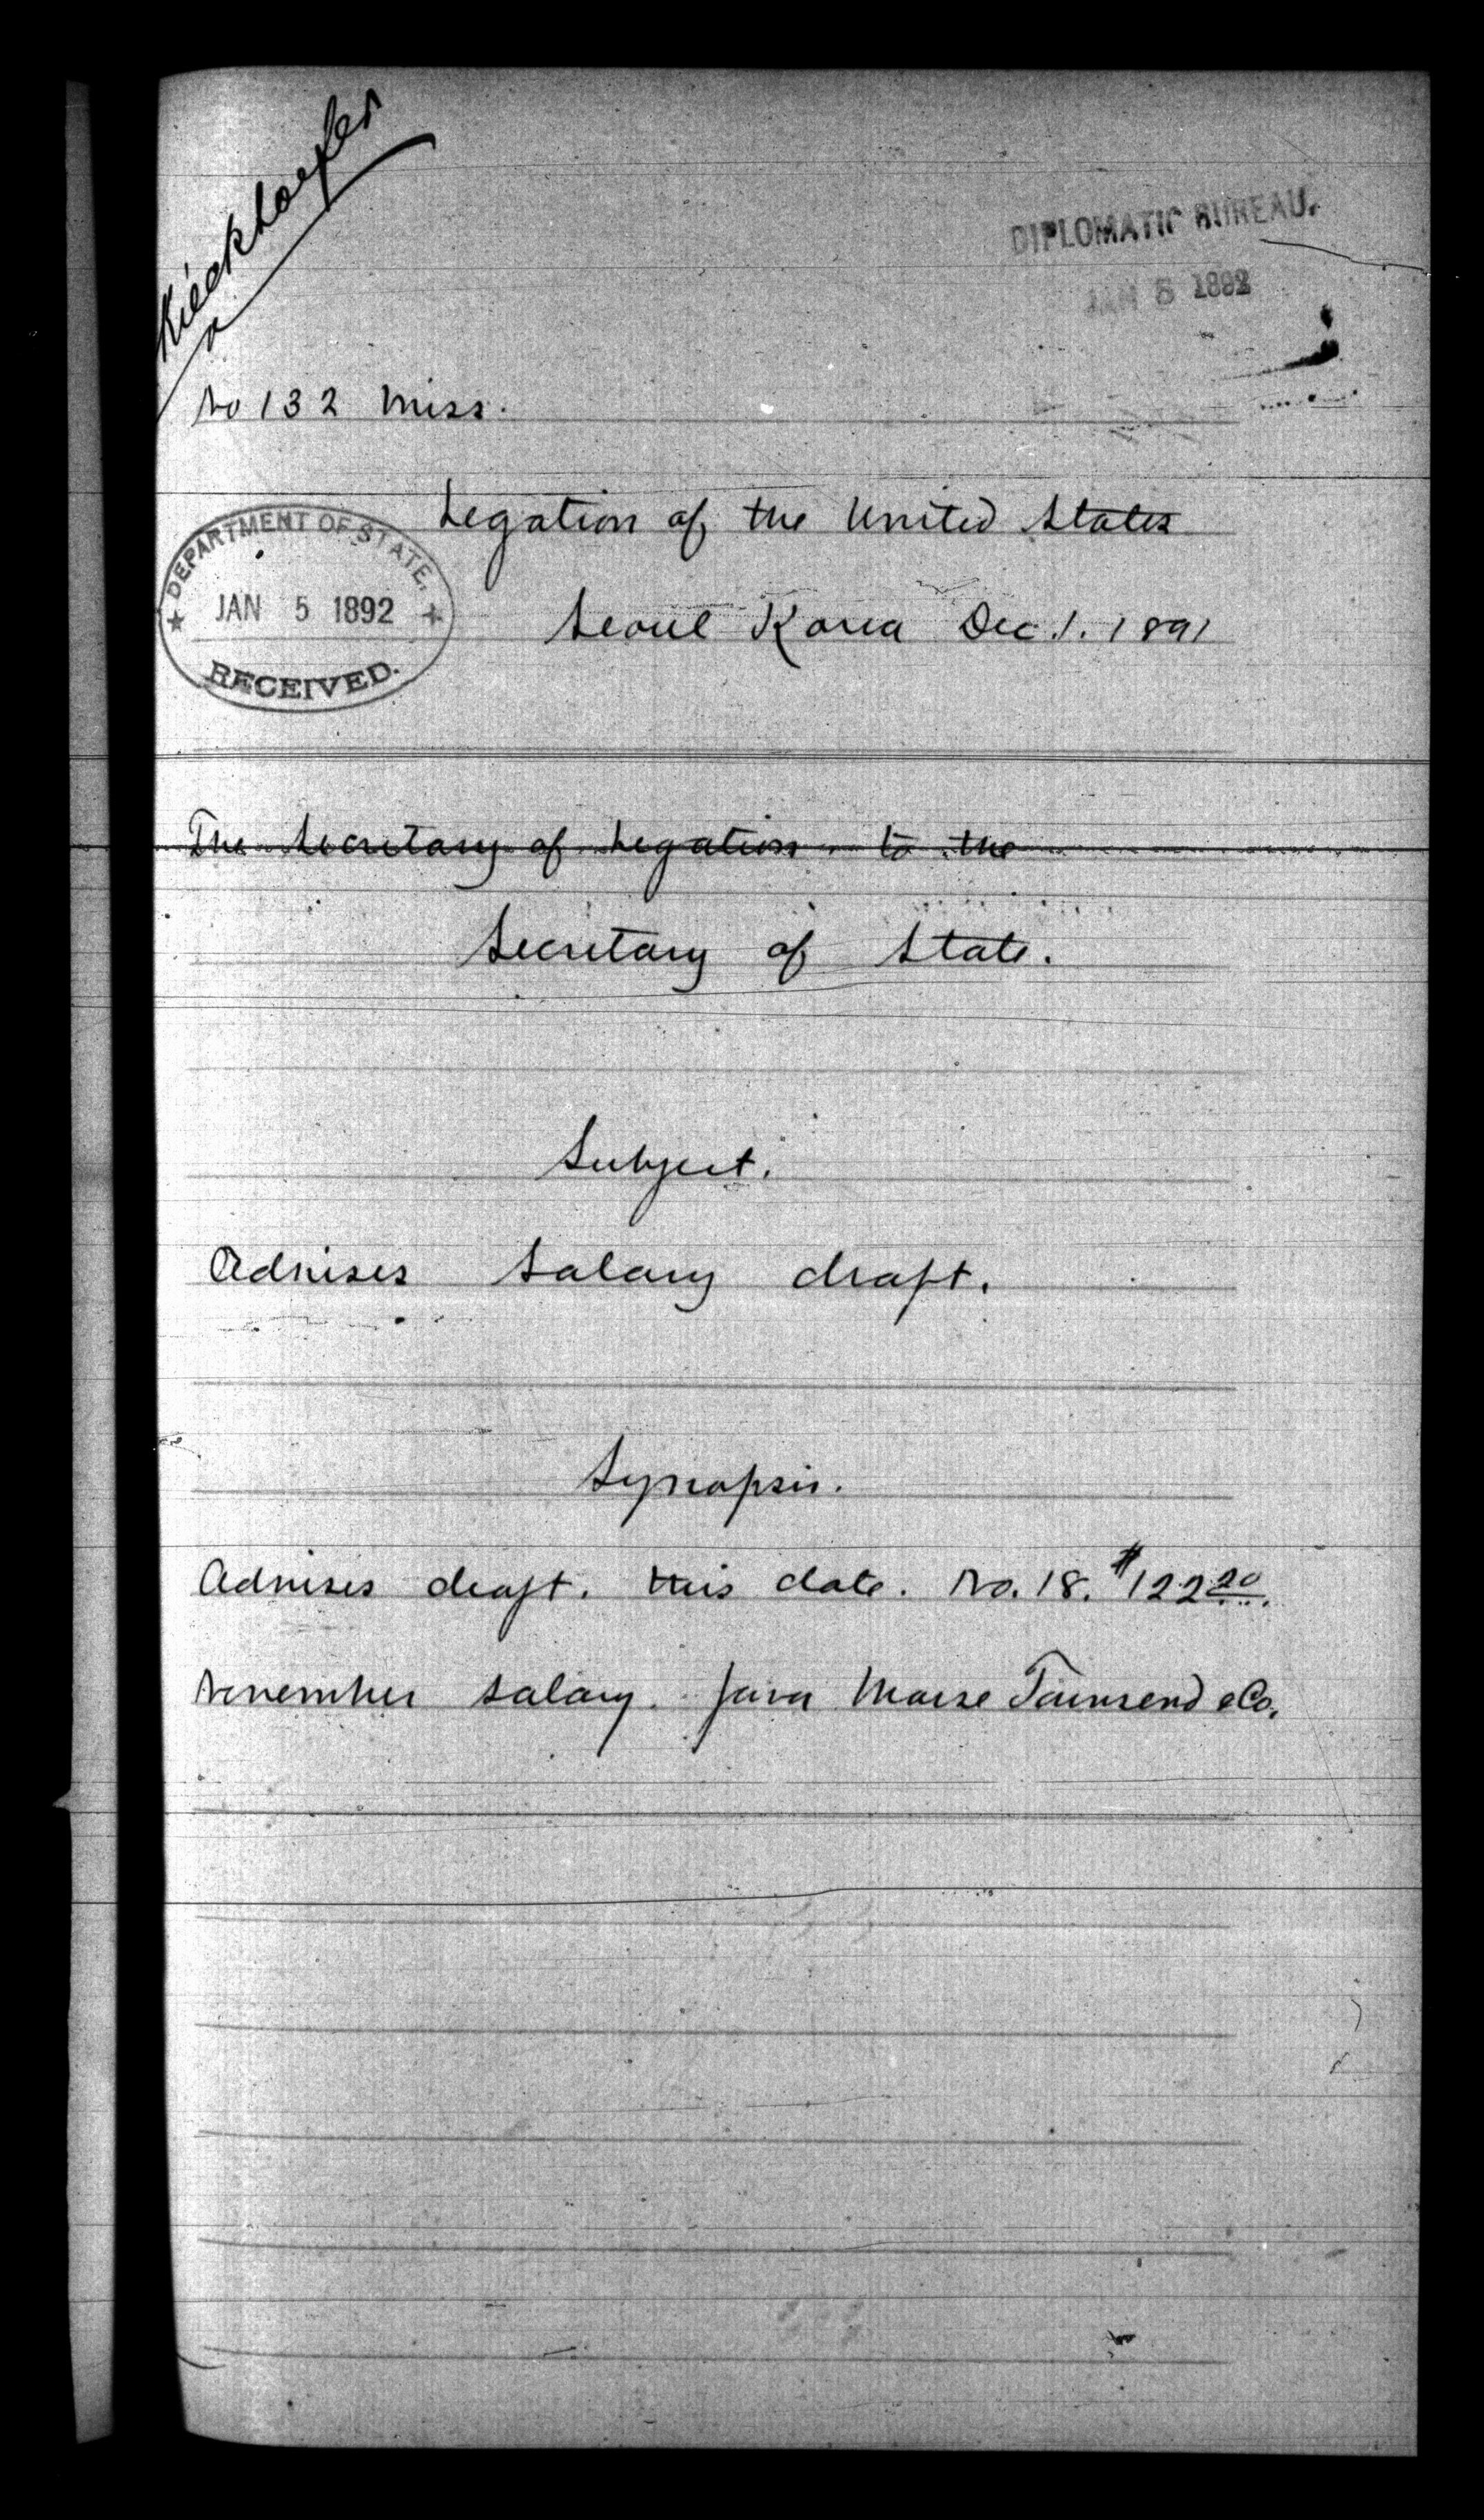 Kieckhoefer
DIPLOMATIC BUREAU.
JAN 5 1892
No 132 Miss.
Legation of the United States
DEPARTMENT OF STATE,
JAN 5 1892
RECEIVED.
Seoul Korea Dec. 1. 1891
The Secretary of Legation to the
Secretary of State.
Subject.
Advises salary draft.
Synopsis.
Advises draft. this date. No. 18. $122 20.
November salary. favor Morse Townsend & Co.